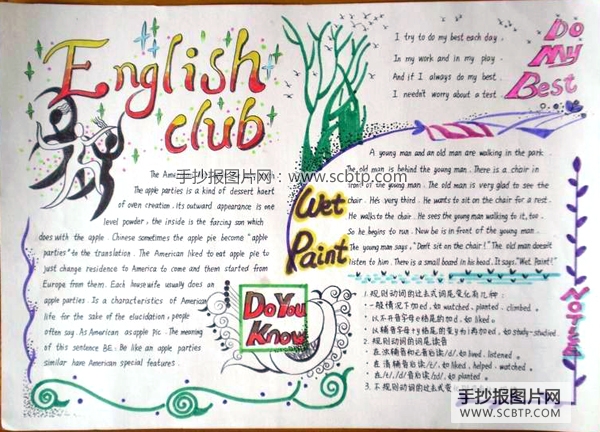 English
club
Do
My
Best
I try to do my best each day.
In my work and in my play
And if I always do my best.
I needn't worry about a test.
手抄报图片网:www.scbtp.com
The Ame
The apple parties is a kind of dessert haert
of oven creation. its outward appearance is one
level powder, the inside is the farcing son which
does with the apple. Chinese sometimes the apple pie become "apple
parties" to the translation. The American liked to eat apple pie to
just change residence to America to come and them started from
Europe from them. Each housewife usually does an
apple parties. Is a characteristics of American
life for the sake of the elucidation, people
often say. As American as apple pic. The meaning
of this sentence BE: Be like an apple parties
similar have American special features.
Wet
Paint
A young man and an old man are walking in the park.
The old man is behind the young man. There is a chair in
front of the young man. The old man is very glad to see the
chair. He's very third. He wants to sit on the chair for a rest.
He walks to the chair. He sees the young man walking to it, too.
So he begins to run. Now he is in front of the young man.
The young man says, "Don't sit on the chair!" The old man doesn't
listen to him. There is a small board in his head. It says, "Wet Paint!"
Do You
Know
1. 规则动词的过去式词是变化有几种
一般情况下加ed,如 watched, planted, climbed。
以不开音字母e结尾的加d,如 liked。
以辅音字母+y结尾的变y为i再加ed,如 study-studied.
2. 规则动词的词是读音
在浊辅音和元音后读/d/,如 lived. listened。
在清辅音后读/t/,如 liked, helped, watched。
在/t/,/d/音后读/ɪd/,如 planted。
3. 不规则动词的过去式变
手抄报图片网
WWW.SCBTP.COM